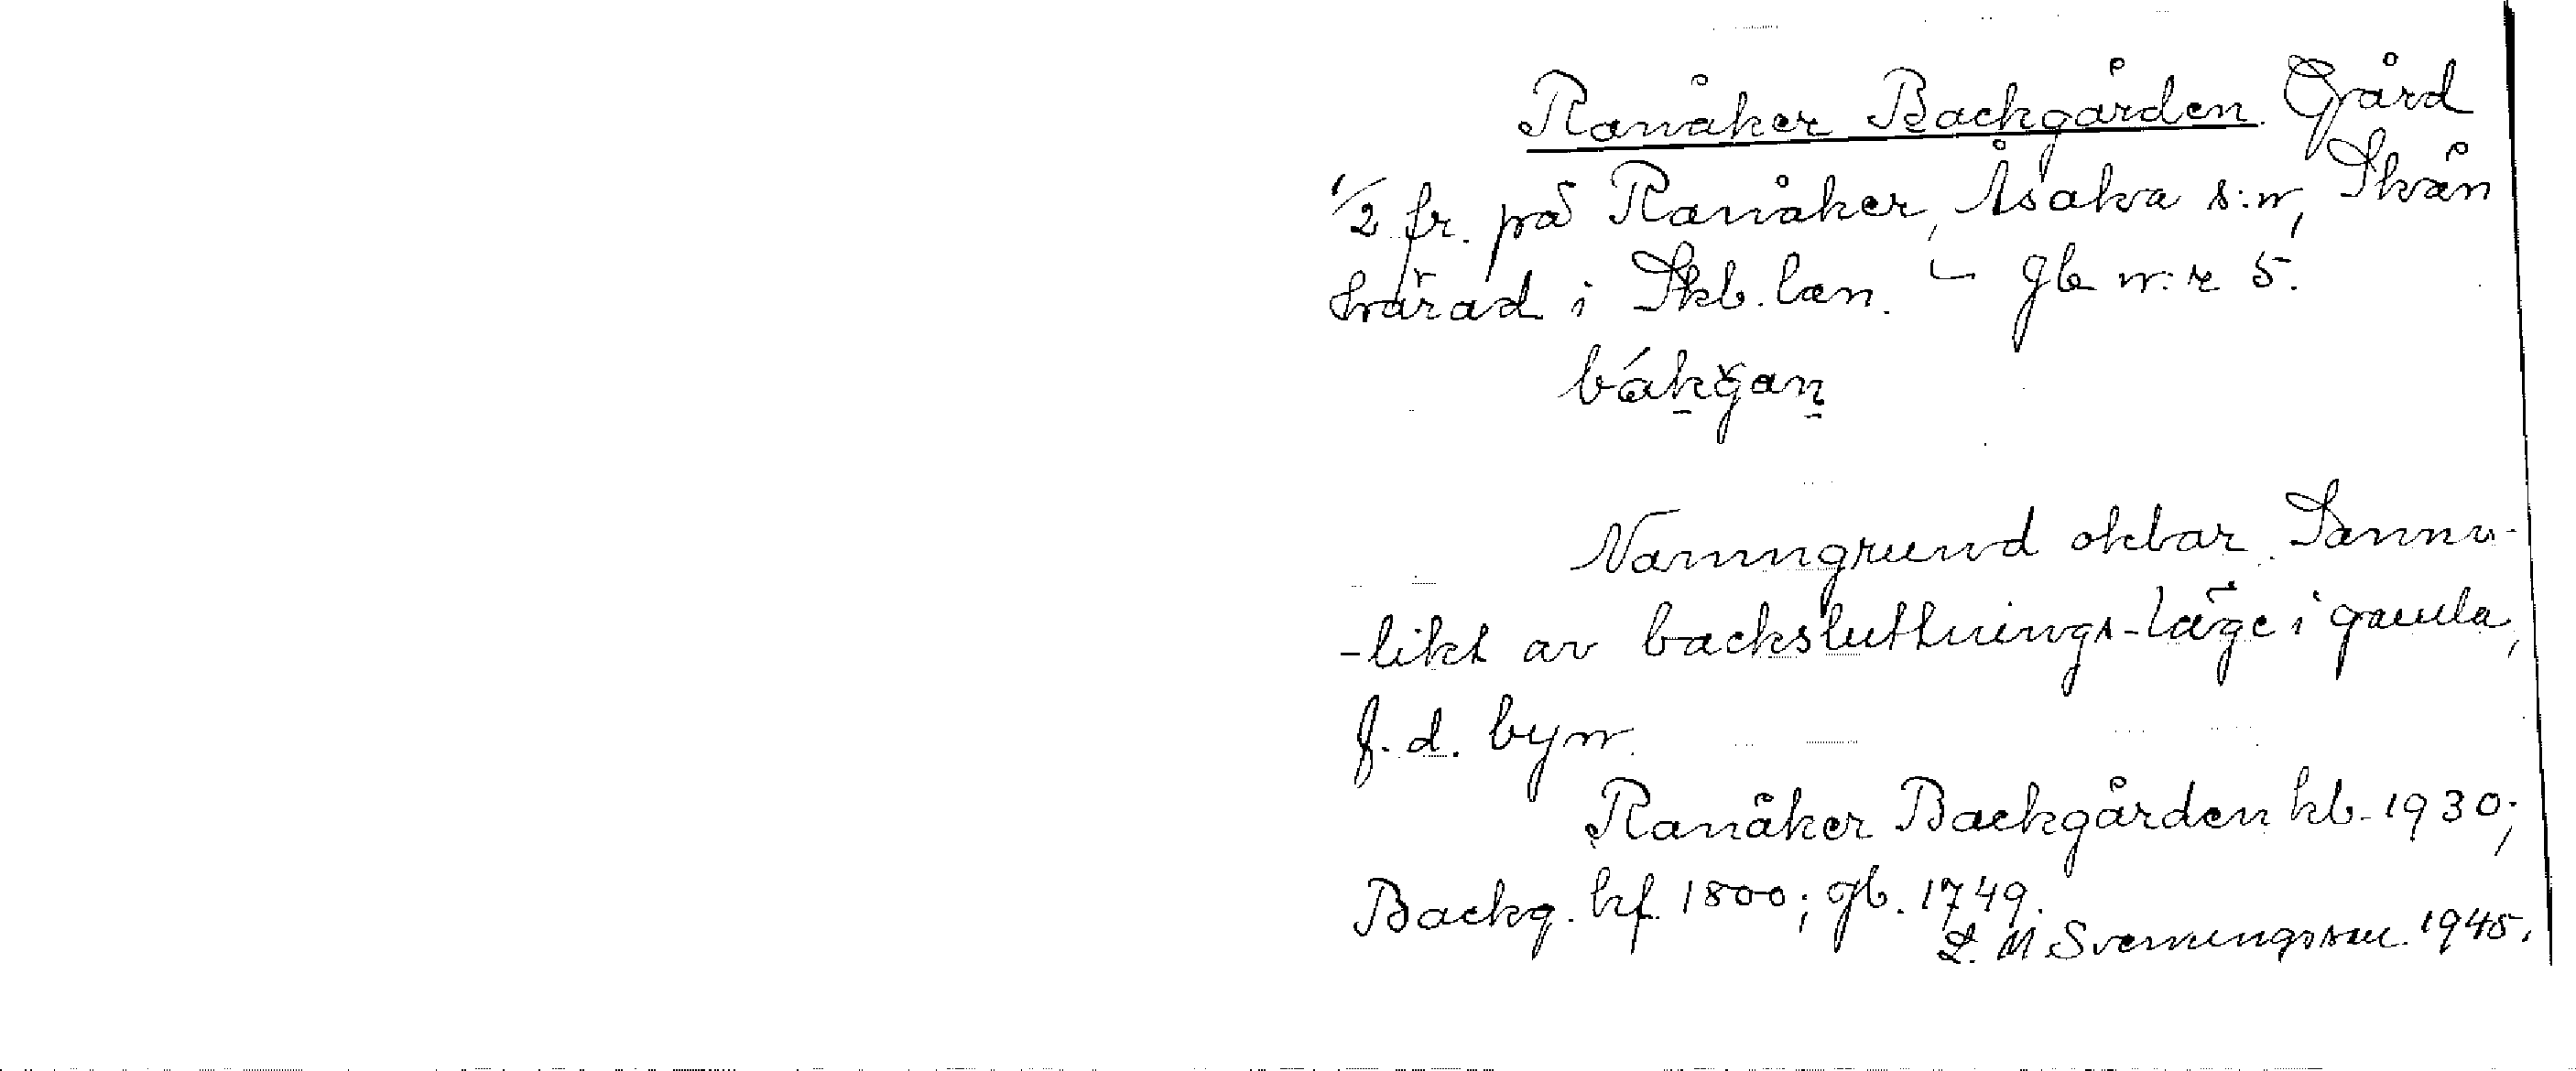 Ranåker Backgården. Gård
1/2 fr. på Ranåker, Åsaka s:n, Skån
härad i Skb. län. — Jb n:r 5.
bákgan
Namngrund okbar. Sanno-
-likt av backsluttnings-läge i gamla,
f. d. byn.
Ranåker Backgården kb. 1930;
Backg. hf. 1800; Jb. 1749.
L. M. Svenningsson. 1945.